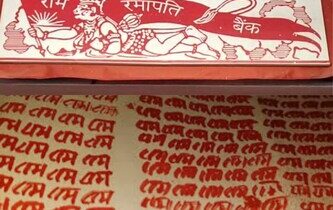 राम रमापति
बैंक
राम राम राम राम राम राम राम राम राम राम
राम राम राम राम राम राम राम राम राम राम
राम राम राम राम राम राम राम राम राम राम
राम राम राम राम राम राम राम राम राम राम
राम राम राम राम राम राम राम राम राम राम